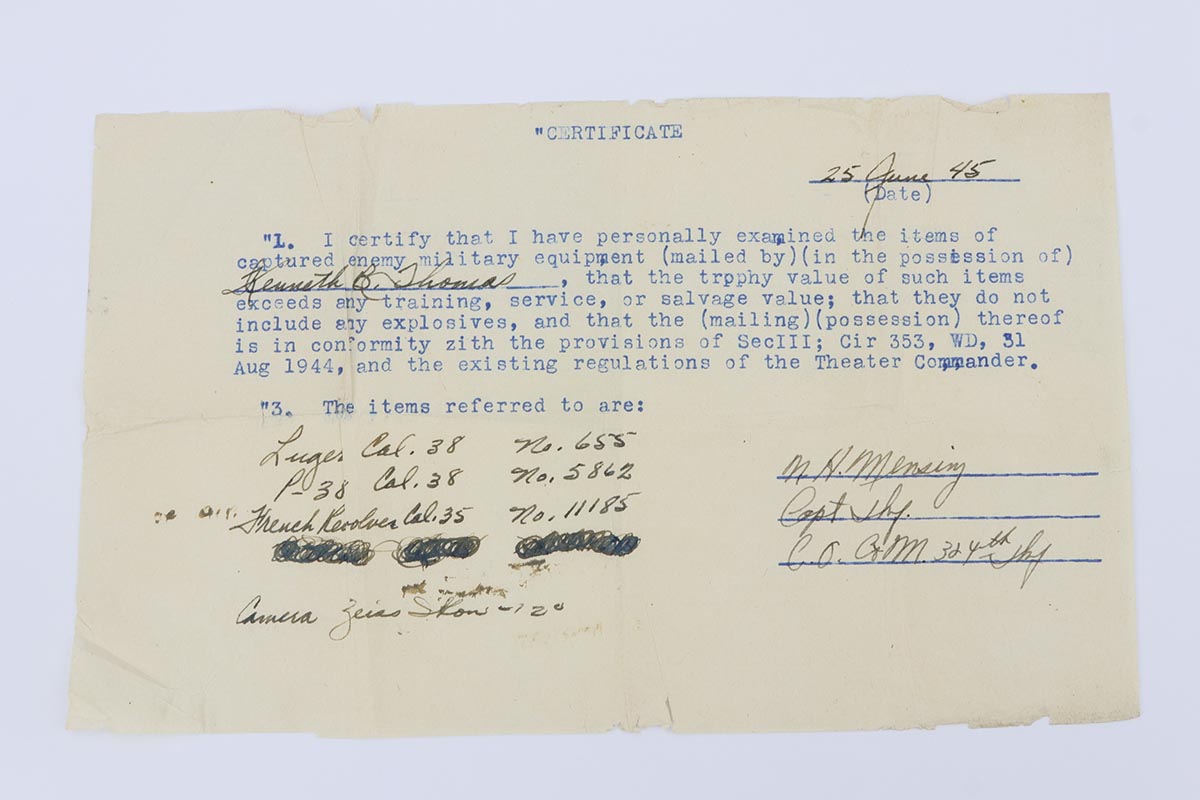 "CERTIFICATE
25 June 45
(Date)
"1. I certify that I have personally examined the items of
captured enemy military equipment (mailed by)(in the possession of)
Kenneth B. Thomas, that the trpphy value of such items
exceeds any training, service, or salvage value; that they do not
include any explosives, and that the (mailing)(possession) thereof
is in conformity zith the provisions of SecIII; Cir 353, WD, 31
Aug 1944, and the existing regulations of the Theater Commander.
"3. The items referred to are:
Luger Cal. 38 No. 655
P-38 Cal. 38 No. 5862
French Revolver Cal. 35 No. 11185
Camera Zeiss Ikon -120
N. H. Mensing
Capt Inf.
C.O. Co M. 324th Inf